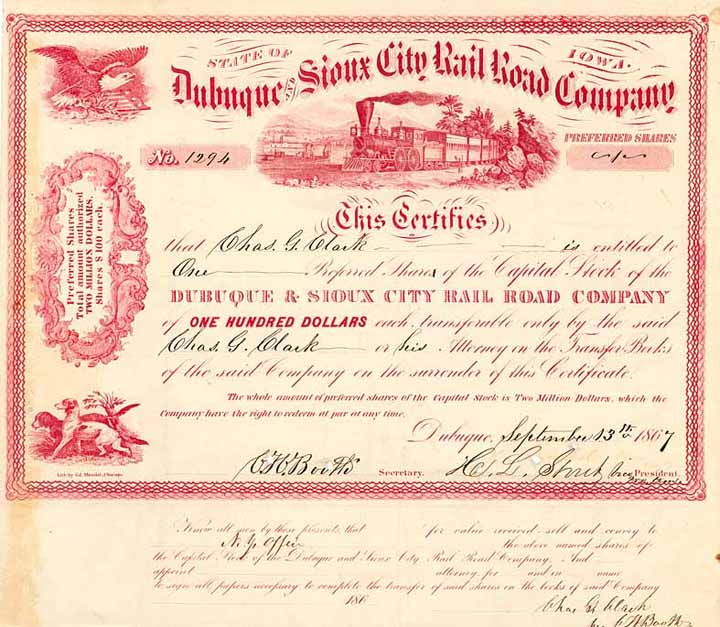 STATE OF IOWA.
Dubuque AND Sioux City Rail Road Company
PREFERRED SHARES
No. 1294
Preferred Shares
Total amount authorized
TWO MILLION DOLLARS.
Shares $100 each.
This Certifies
that Chas. G. Clark is entitled to
One Preferred Share of the Capital Stock of the
DUBUQUE & SIOUX CITY RAIL ROAD COMPANY
of ONE HUNDRED DOLLARS each, transferable only by the said
Chas. G. Clark or his Attorney on the Transfer Books
of the said Company on the surrender of this Certificate.
The whole amount of preferred shares of the Capital Stock is Two Million Dollars, which the
Company have the right to redeem at par at any time.
Dubuque, September 13th 1867
Lith. by Ed. Mendel, Chicago.
Secretary. H. L. Stout Vice President.
Know all men by these presents, that for value received, sell and convey to
the above named shares of
the Capital Stock of the Dubuque and Sioux City Rail Road Company. And
appoint attorney for and in name
to sign all papers necessary to complete the transfer of said shares on the books of said Company
186
Chas G. Clark